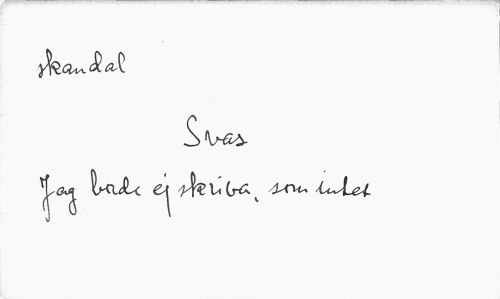 skandal
Svas
Jag borde ej skriva, som intet